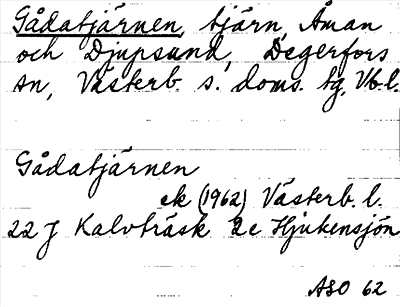 Gådatjärnen, tjärn, Åman
och Djupsund, Degerfors
sn, Västerb. s. doms. tg, Vb. l.
Gådatjärnen
ek (1962) Västerb. l.
22 J Kalvträsk 2c Hjukensjön
ASO 62